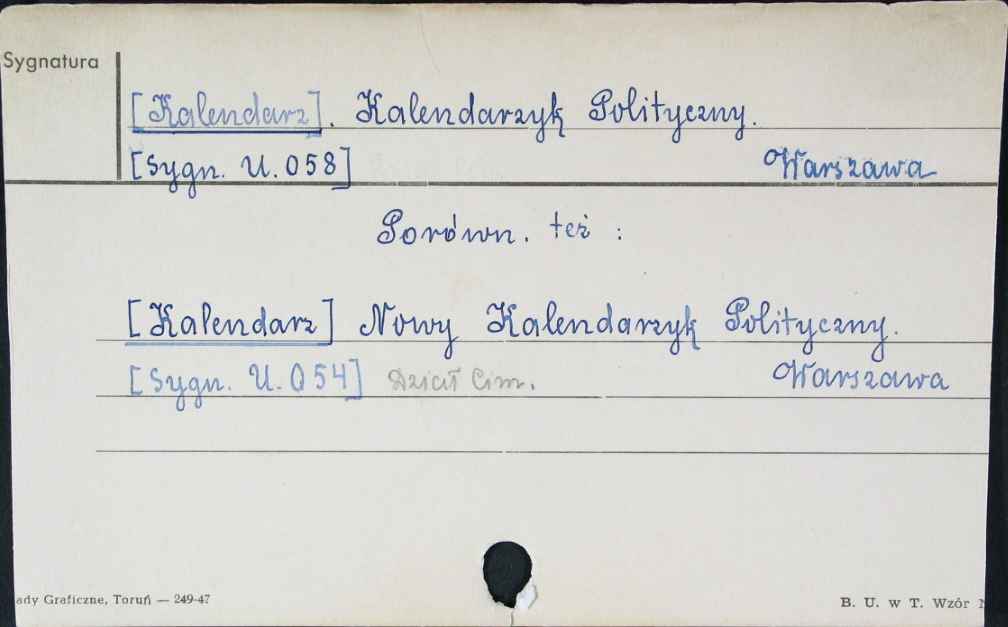 Sygnatura
[Kalendarz]. Kalendarzyk Polityczny.
[Sygn. U. 058] Warszawa
Porówn. też :
[Kalendarz] Nowy Kalendarzyk Polityczny.
[Sygn. U. 054] Dział Cim. Warszawa
ady Graficzne, Toruń — 249-47 B. U. w T. Wzór